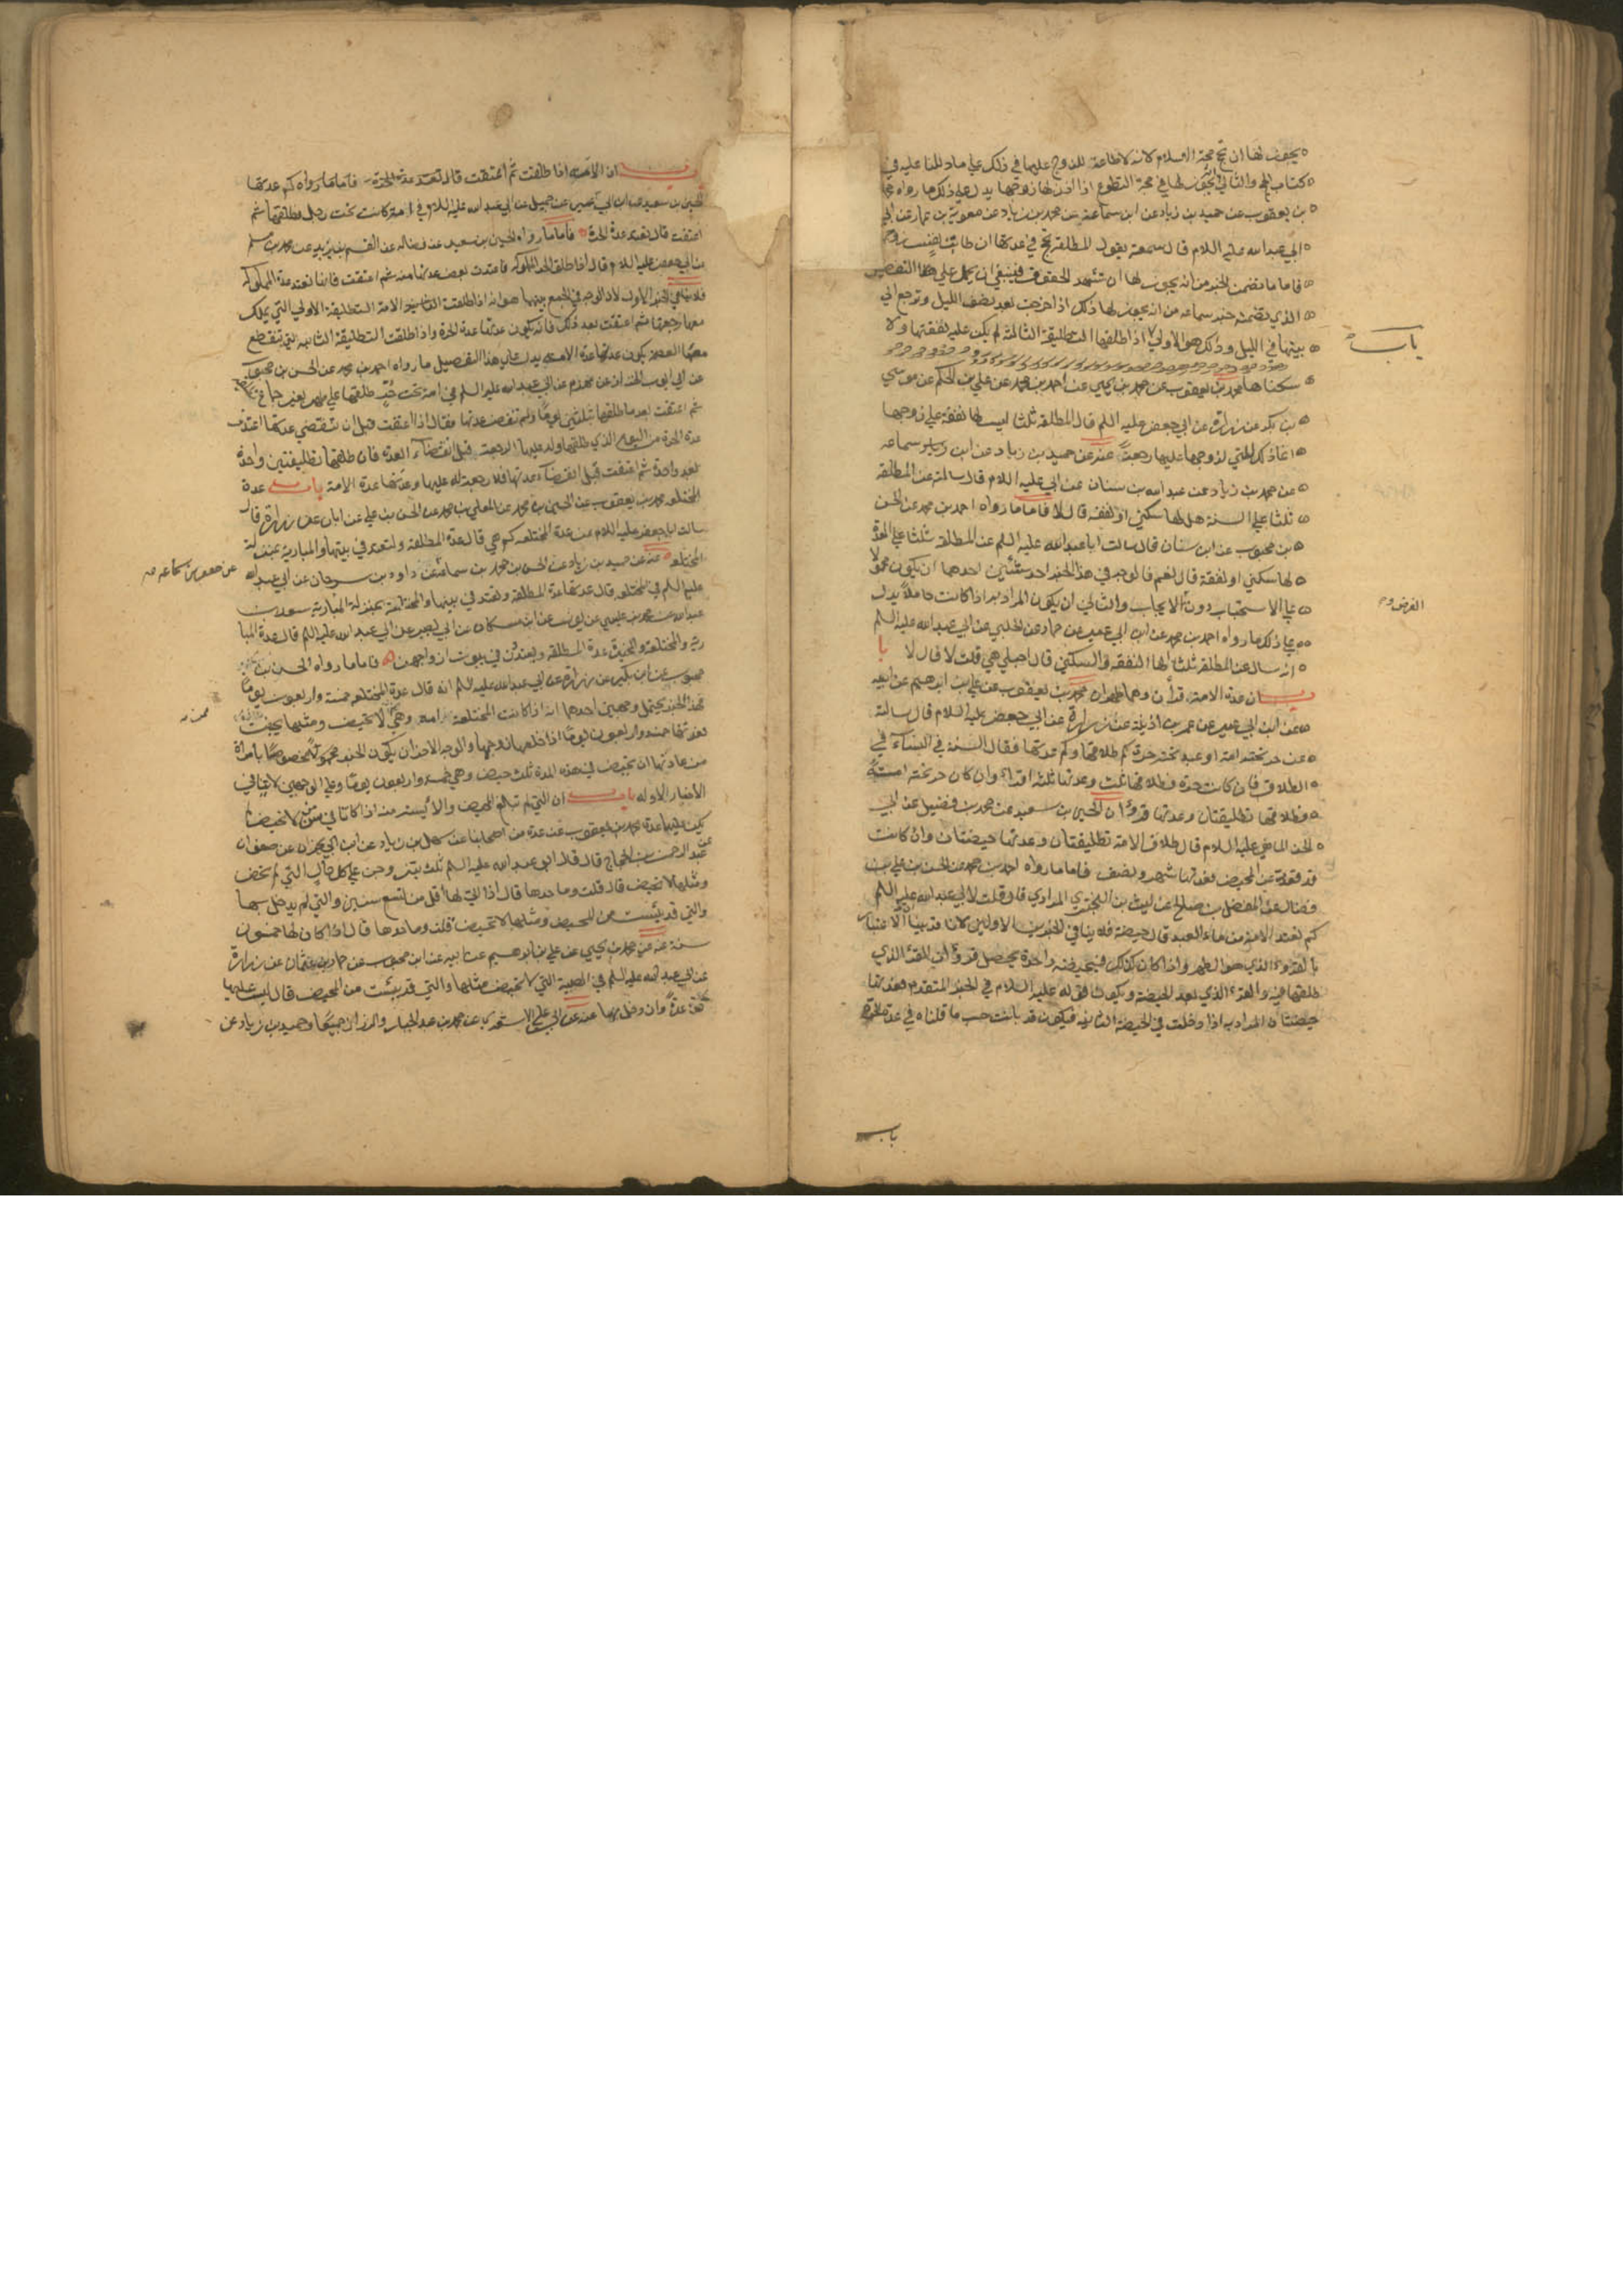 يجوز لها ان تحج حجة الاسلام لانه لا طاعة للزوج عليها في ذلك علي ما دللنا عليه في
كتاب الحج والثاني يجوز لها في حجة التطوع اذا اذن لها زوجها يدل علي ذلك ما رواه محمد
بن يعقوب عن حميد بن زياد عن ابن سماعة عن محمد بن زياد عن معوية بن عمار عن
ابي عبد الله عليه السلام قال سمعته يقول المطلقة تحج في عدتها ان طابت نفس زوجها
فاما ما تضمن الخبر من انه يجوز لها ان تشهد الحقوق فينبغي ان يحمل علي هذا التفصيل
الذي تضمنه خبر سماعه من انه يجوز لها ذلك اذا خرجت بعد نصف الليل وترجع الي
بيتها في الليل وذلك هو الاولي اذا طلقها التطليقة الثالثة لم يكن عليه نفقتها ولا
باب
سكناها محمد بن يعقوب عن محمد بن يحيي عن احمد بن محمد عن علي بن الحكم عن موسي
بن بكر عن زرارة عن ابي جعفر عليه السلم قال المطلقة ثلثا ليس لها نفقة علي زوجها
انما ذلك للتي لزوجها عليها رجعة عنه عن حميد بن زياد عن ابن سماعه
عن محمد بن زياد عن عبد الله بن سنان عن ابي عليه السلام قال سالته عن المطلقة
ثلثا علي السنة هل لها سكني او نفقة قال لا فاما ما رواه احمد بن محمد عن الحسن
بن محبوب عن ابن سنان قال سالت ابا عبد الله عليه السلم عن المطلقة ثلثا علي العدة
لها سكني او نفقة قال نعم فالوجه في هذا الخبر احد شيئين احدهما ان يكون محمولا
علي الاستحباب دون الايجاب والثاني ان يكون المراد به اذا كانت حاملا يدل
الفرض
علي ذلك ما رواه احمد بن محمد عن ابن ابي عمير عن حماد عن الحلبي عن ابي عبد الله عليه السلم
انه سال عن المطلقة ثلثا لها النفقة والسكني قال احبلي هي قلت لا قال لا با
ب ان عدة الامة قرأن وهما طهران محمد بن يعقوب عن علي بن ابرهيم عن ابيه
عن ابن ابي عمير عن عمر بن اذينة عن زرارة عن ابي جعفر عليه السلام قال سالته
عن حر تحته امة او عبد تحته حرة كم طلاقها وكم عدتها فقال السنة في النساء في
الطلاق فان كانت حرة فطلاقها ثلث وعدتها ثلثة اقراء وان كان حر تحته امة
فطلاقها تطليقتان وعدتها قرؤان الحسين بن سعيد عن محمد بن فضيل عن ابي
الحسن الماضي عليه السلام قال طلاق الامة تطليقتان وعدتها حيضتان وان كانت
قد قعدت عن المحيض فعدتها شهر ونصف فاما ما رواه احمد بن محمد عن الحسن بن علي بن
فضال عن المفضل بن صالح عن ليث بن البختري المرادي قال قلت لابي عبد الله عليه السلم
كم تعتد الامة من ماء العبد قال حيضة فلا ينافي الخبرين الاولين لانا قد بينا ان الاعتبار
بالقرء الذي هو الطهر واذا كان كذلك فبحيضة واحدة يحصل قرؤان القرء الذي
طلقها فيه والقرء الذي بعد الحيضة ويكون قوله عليه السلام في الخبر المتقدم فعدتها
حيضتان المراد به اذا دخلت في الحيضة الثانية فيكون قد بانت حسب ما قلناه في عدة الحرة
باب
ب ان الامة اذا طلقت ثم اعتقت قال تعتد عدة الحرة فاما ما رواه كم عدتها
الحسين بن سعيد عن ابن ابي عمير عن جميل عن ابي عبد الله عليه السلام في امة كانت تحت رجل فطلقها ثم
اعتقت قال تعتد عدة الحرة فاما ما رواه الحسين بن سعيد عن فضاله عن القسم بن بريد عن محمد بن مسلم
عن ابي جعفر عليه السلام قال اذا طلق الحر المملوكة فاعتدت بعض عدتها منه ثم اعتقت فانها تعتد عدة المملوكة
فلا ينافي الخبر الاول لان الوجه في الجمع بينهما هو انه اذا طلقت الامة التطليقة الاولي التي يملك
معها رجعتها ثم اعتقت بعد ذلك فانه يكون عدتها عدة الحرة واذا طلقت التطليقة الثانيه التي تنقطع
معها العصمة يكون عدتها عدة الامة يدل علي هذا التفصيل ما رواه احمد بن محمد عن الحسن بن محبوب
عن ابي ايوب الخزاز عن مهزم عن ابي عبد الله عليه السلم في امة تحت حر طلقها علي طهر بغير جماع
ثم اعتقت بعد ما طلقها بثلثين يوما ولم تنقض عدتها فقال اذا اعتقت قبل ان تنقضي عدتها اعتدت
عدة الحرة من اليوم الذي طلقها وله عليها الرجعة قبل انقضاء العدة فان طلقها تطليقتين واحدة
بعد واحدة ثم اعتقت قبل انقضاء عدتها فلا رجعة له عليها وعدتها عدة الامة باب عدة
المختلعه محمد بن يعقوب عن الحسين بن محمد عن المعلي بن محمد عن الحسن بن علي عن ابان عن زرارة قال
سالت ابا جعفر عليه السلام عن عدة المختلعه كم هي قال عدة المطلقة ولتعتد في بيتها والمبارية بمنزلة
المختلعه عنه عن حميد بن زياد عن الحسن بن محمد بن سماعة عن داود بن سرحان عن ابي عبد الله
عن جعفر بن سماعه
عليه السلم في المختلعه قال عدتها عدة المطلقة وتعتد في بيتها والمختلعة بمنزلة المبارية سعد بن
عبد الله عن محمد بن عيسي عن يونس عن ابن مسكان عن ابي بصير عن ابي عبد الله عليه السلم قال عدة المبا
رية والمختلعة والمخيرة عدة المطلقة ويعتددن في بيوت ازواجهن فاما ما رواه الحسن بن
محبوب عن ابن بكير عن زرارة عن ابي عبد الله عليه السلم انه قال عدة المختلعه خمسة واربعون يوما
فهذا الخبر يحتمل وجهين احدهما انه اذا كانت المختلعة امه وهي لا تحيض ومثلها تحيض
فعدتها خمسة واربعون يوما اذا خلعها زوجها والوجه الاخر ان يكون الخبر مخصوصا بامراة
من عادتها ان تحيض في هذه المدة ثلث حيض وهي خمسه واربعون يوما وعلي الوجهين لا ينافي
الاخبار الاوله باب ان التي لم تبلغ المحيض والآيسة منه اذا كانتا في سن من لا تحيض لم
يكن عليهما عدة محمد بن يعقوب عن عدة من اصحابنا عن سهل بن زياد عن ابن ابي نجران عن صفوان
عن عبد الرحمن بن الحجاج قال قال ابو عبد الله عليه السلم ثلث يتزوجن علي كل حال التي لم تحض
ومثلها لا تحيض قال قلت وما حدها قال اذا اتي لها اقل من تسع سنين والتي لم يدخل بها
والتي قد يئست من المحيض ومثلها لا تحيض قلت وما حدها قال اذا كان لها خمسون
سنة عنه عن محمد بن يحيي عن علي بن ابرهيم عن ابيه عن ابن محبوب عن حماد بن عثمان عن زرارة
عن ابي عبد الله عليه السلم في الصبية التي لا تحيض مثلها والتي قد يئست من المحيض قال ليس عليهما
عدة وان دخل بهما عنه عن ابي علي الاشعري عن محمد بن عبد الجبار والرزاز جميعا وحميد بن زياد عن